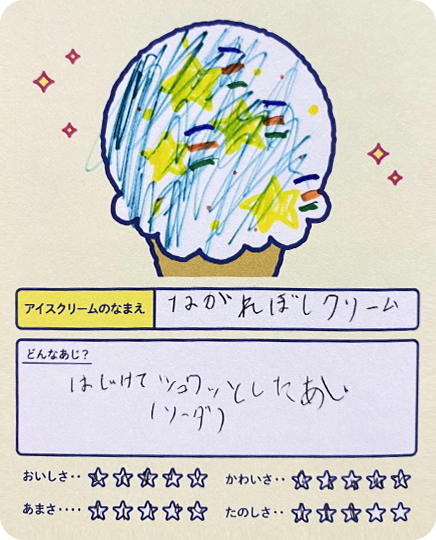 アイスクリームのなまえ
ながれぼしクリーム
どんなあじ?
はじけてシュワッとしたあじ
(ソーダ)
おいしさ‥ ☆☆☆☆☆ かわいさ‥ ☆☆☆☆☆
あまさ‥‥ ☆☆☆☆☆ たのしさ‥ ☆☆☆☆☆